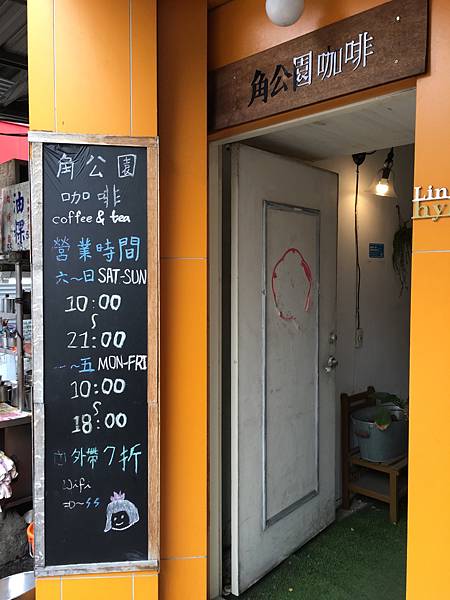 角公園咖啡
角公園
咖啡
coffee & tea
營業時間
六~日 SAT-SUN
10:00
~
21:00
一~五 MON-FRI
10:00
~
18:00
外帶7折
Wifi
油粿
Lin
hy